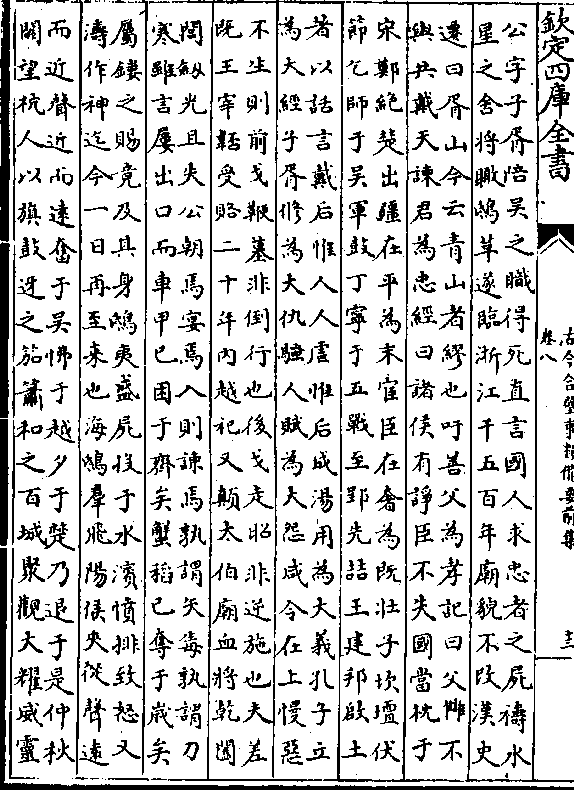 欽定四庫全書
古今合璧事類備要前集
卷八
十三
公字子胥陪吳之職得死直言國人求忠者之屍禱水
星之舍將瞰鴟革遂臨浙江千五百年廟貌不改漢史
遷曰胥山今云青山者繆也吁善父為孝記曰父讎不
與共戴天諫君為忠經曰諸侯有諍臣不失國當枕于
宋鄭絶楚出疆在平為末宦臣在奢為既壯子坎壇伏
節乞師于吳軍鼓丁寧于五戰至郢先詰王建邦啟土
者以話言戴后惟人人虐惟后成湯用為大義孔子立
為大經子胥修為大仇騷人賦為大怨咸令在上慢惡
不生則前戈鞭墓非倒行也後戈走昭非逆施也夫差
既王宰嚭受賂二十年內越祀又顛太伯廟血將乾闔
閭劔光且失公朝焉宴焉入則諫焉孰謂矢毒孰謂刀
寒雖言屢出口而車甲已困于齊矣蟹稻已奪于歲矣
屬鏤之賜竟及其身鴟夷盛屍投于水濱憤排致怒又
濤作神迄今一日再至來也海鴟羣飛陽侯夾從聲遠
而近聲近而遠奮于吳怫于越夕于楚乃退于是仲秋
闕望杭人以旗鼓迓之笳簫和之百城聚觀大耀威靈